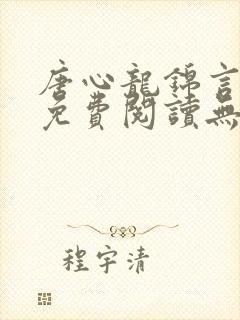 唐心龍錦言
免費閱讀無
程宇清